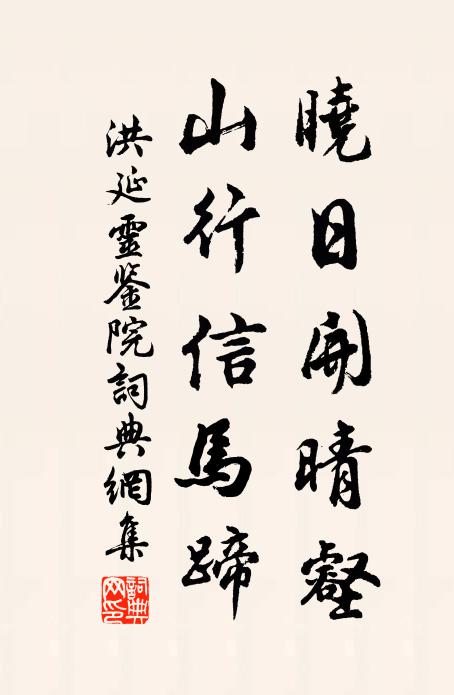 曉日開晴壑
山行信馬蹄
洪延靈鉴院詞典網集
詞典
网印